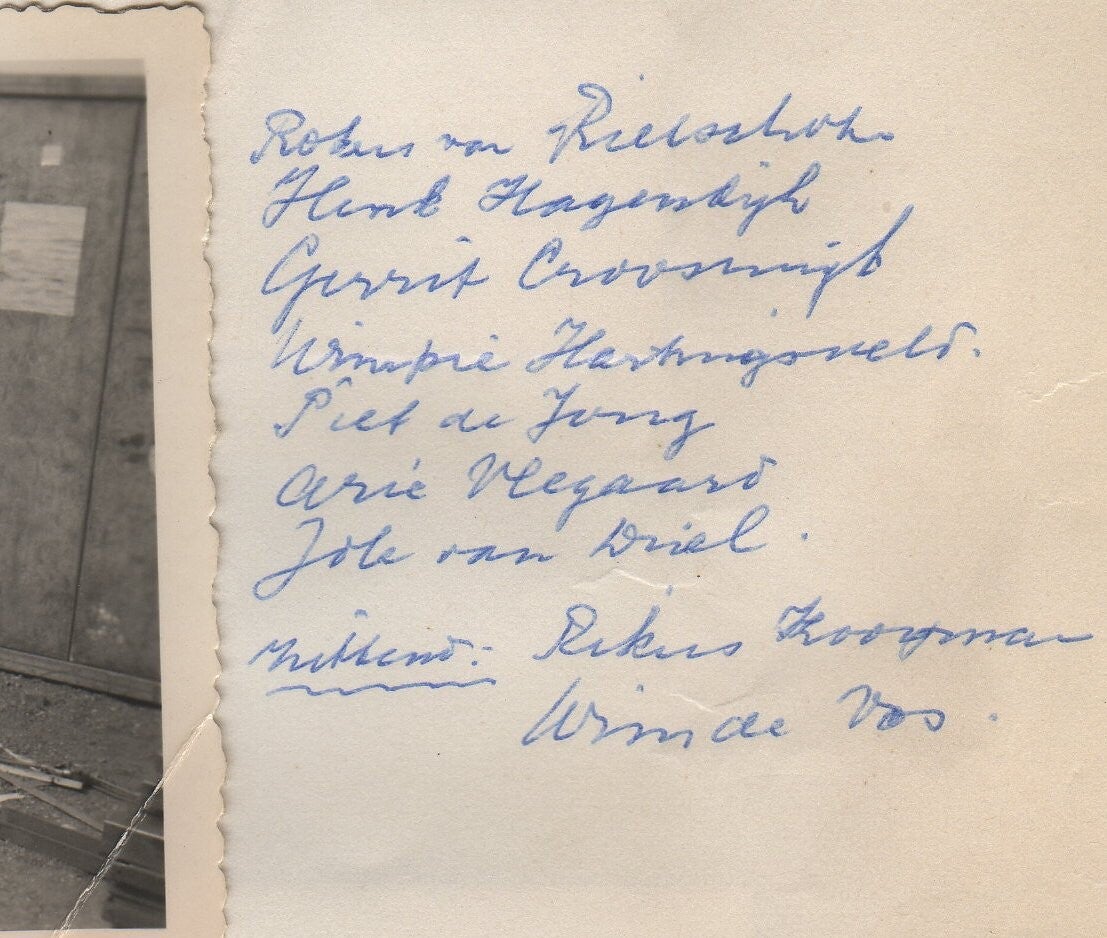 Rokus van Rietschoten
Henk Hagendijk
Gerrit Crooswijk
Wimpie Hartingsveld.
Piet de Jong
Arie Vlegaard
Job van Driel.
zittend: Rikus Kooyman
Wim de Vos.